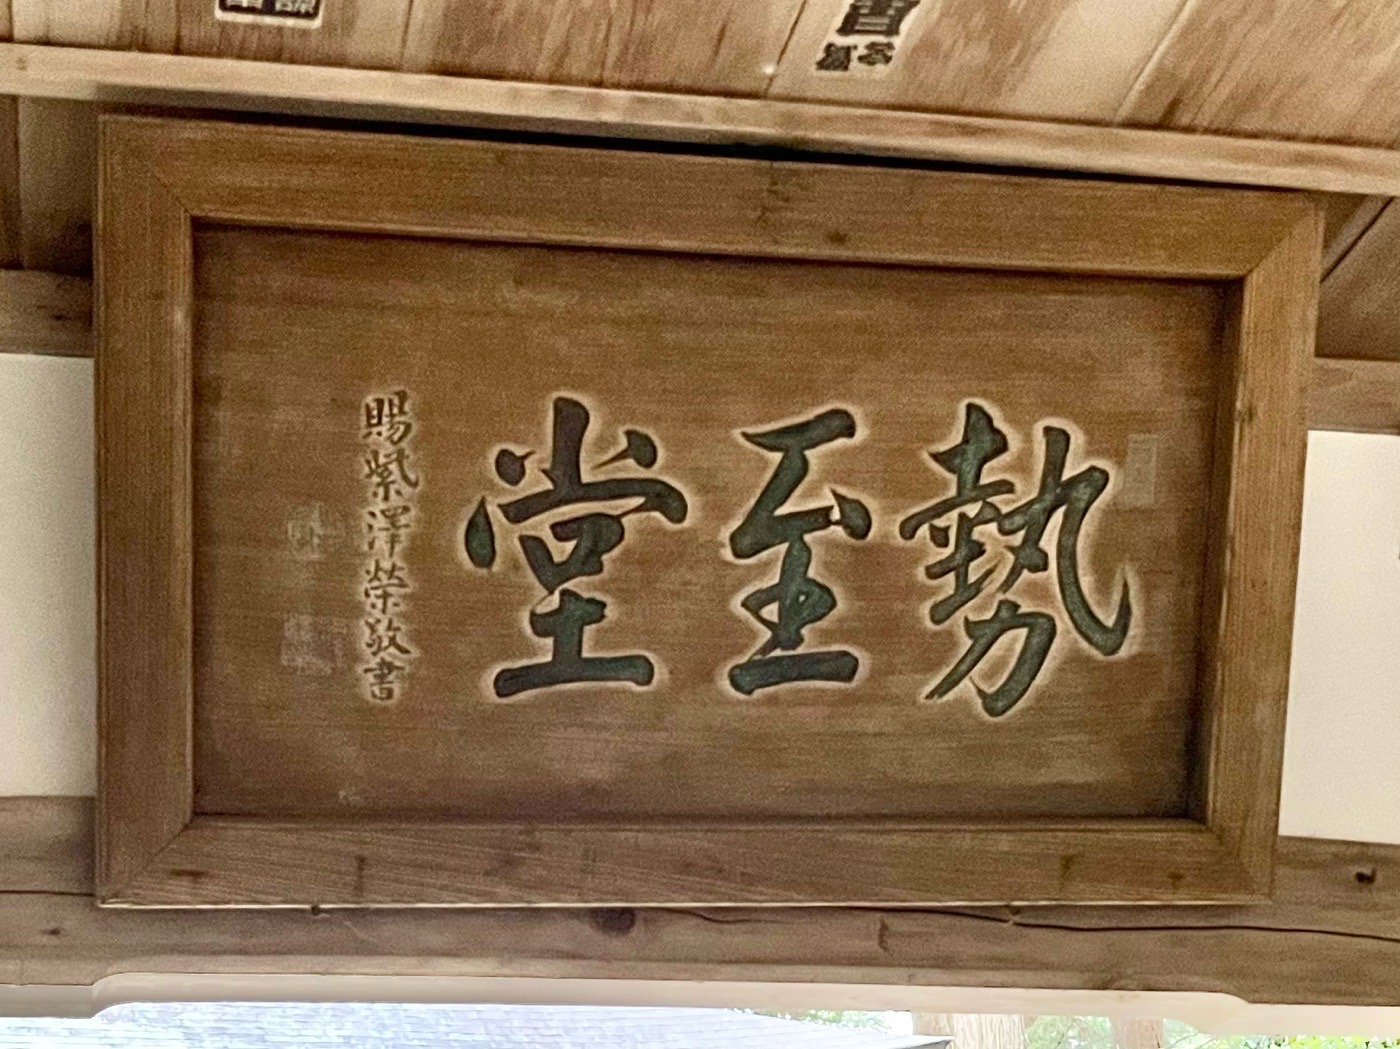 勢至堂
賜紫澤榮敬書